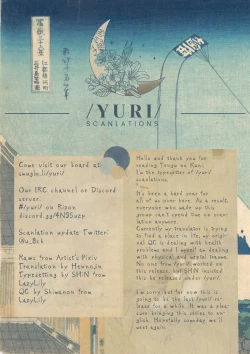 /YURI/
SCANLATIONS
Come visit our board at:
smuglo.li/yuri/
Our IRC channel or Discord
server:
#/yuri/ on Rizon
discord.gg/4N95uzp
Scanlation update Twitter:
@u_8ch
Raws from Artist's Pixiv
Translation by Hennojin
Typesetting by SHiN from
LazyLily
QC by Shiwanon from
LazyLily
Hello and thank you for
reading Tengu no Kami
I'm the typesetter of /yuri/
scanlations.
It's been a hard year for
all of us over here. As a result,
everyone who made up this
group can't spend time on scan-
lation anymore.
Currently my translator is trying
to find a place in life, my original
QC is dealing with health
problems and I myself am dealing
with physical and mental issues.
No one from /yuri/ worked on
this release, but SHiN insisted
this be released under /yuri/.
I'm sorry, but for now this is
going to be the last /yuri/ re-
lease for a while. It was a plea-
sure bringing this series to en-
glish. Hopefully someday we'll
meet again.